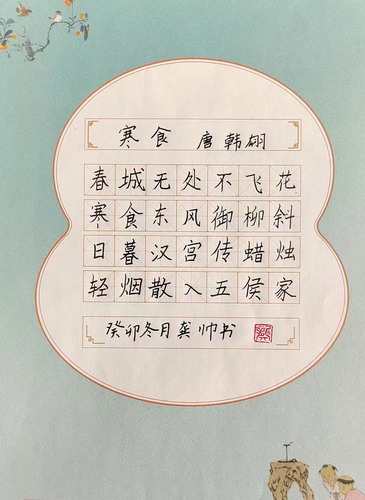 寒食 唐韩翃
春城无处不飞花
寒食东风御柳斜
日暮汉宫传蜡烛
轻烟散入五侯家
癸卯冬月龚帅书